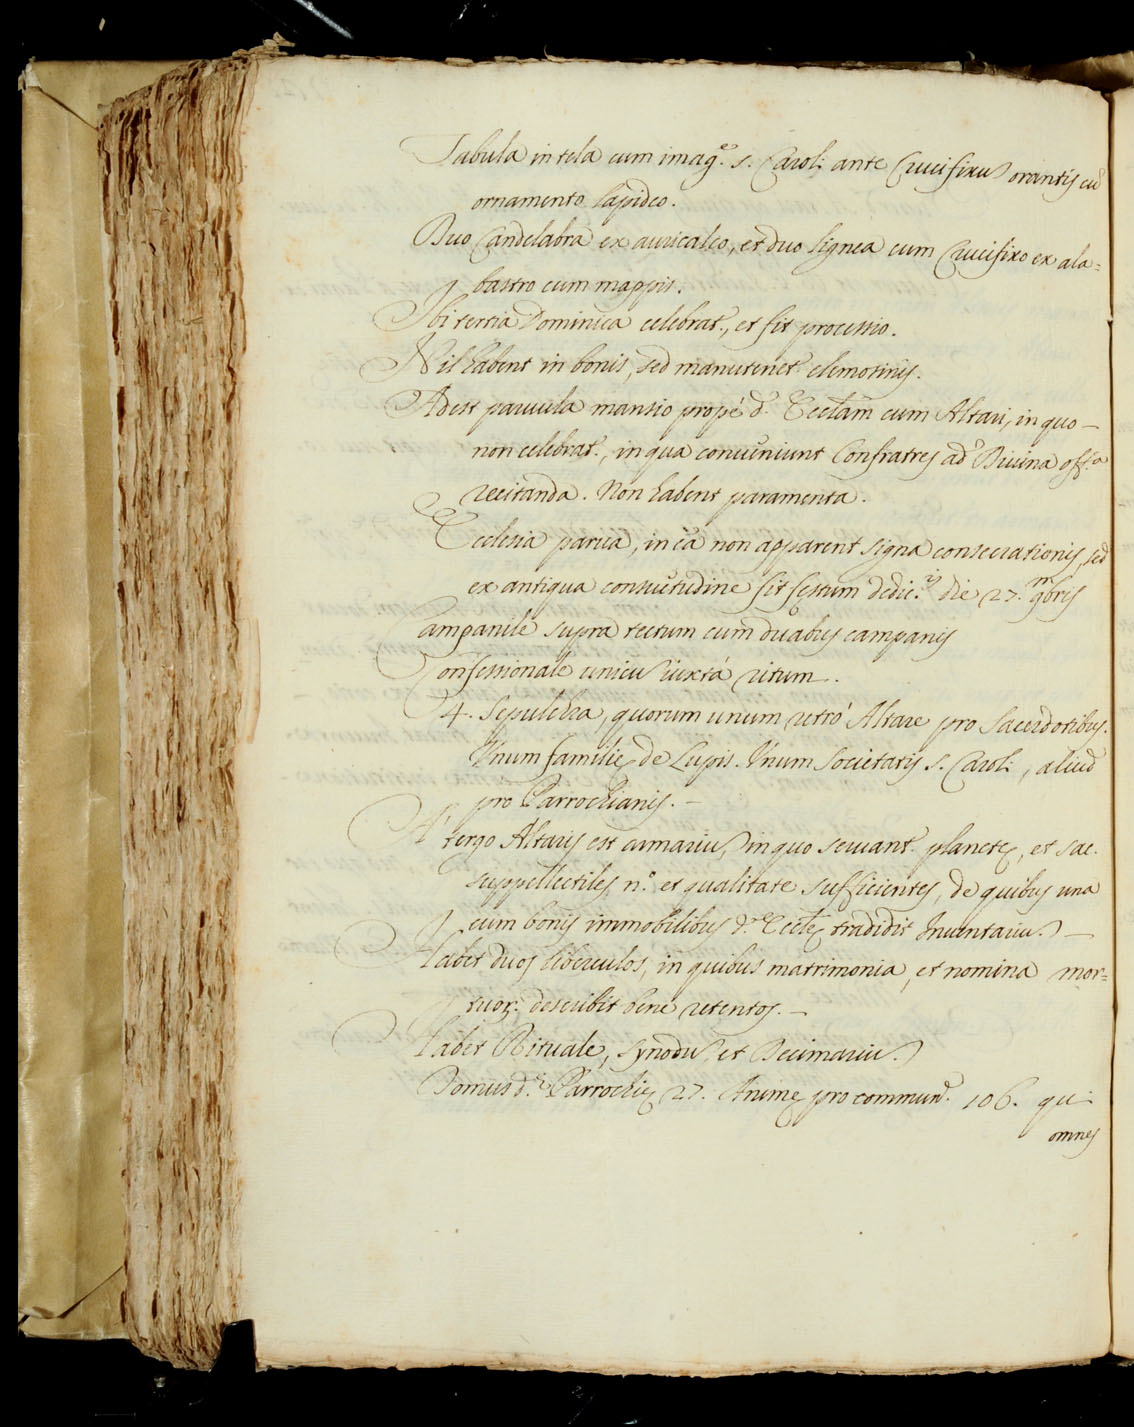 Tabula in tela cum imag.e s. Caroli ante Crucifixũ orantis cũ
ornamento lapideo.
Duo Candelabra ex auricalco, et duo lignea cum Crucifixo ex ala=
bastro cum mappis.
Ibi tertia Dominica celebrat.r, et fit processio.
Nil habent in bonis, sed manutenet.r elemosinis.
Adest paruula mansio propè d.m Eccl̃am cum Altari, in quo —
non celebrat.r, in qua conueniunt Confratres ad Diuina off.a
recitanda. Non habent paramenta.
Ecclesia parua, in ea non apparent signa consecrationis, sed
ex antiqua consuetudine fit festum dedic.is die 27. m 9bris
Campanile supra tectum cum duabus campanis
Confessionale unicũ iuxtà ritum.
4. Sepulchra, quorum unum retrò Altare pro Sacerdotibus.
Vnum familię de Lupis. Vnum Societatis s. Caroli, aliud
pro Parrochianis. —
A' tergo Altaris est armariũ, in quo seruant.r planetę, et sac.
suppellectiles n.o et qualitate sufficientes, de quibus una
cum bonis immobilibus d.ę Eccl̃ę tradidit Inuentariũ. —
Habet duos liberculos, in quibus matrimonia, et nomina mor=
tuor. describit benè retentos. —
Habet Rituale, synodũ et Decimariũ.
Domus d.ę Parrochię 27. Animę pro commun.e 106. qui
omnes